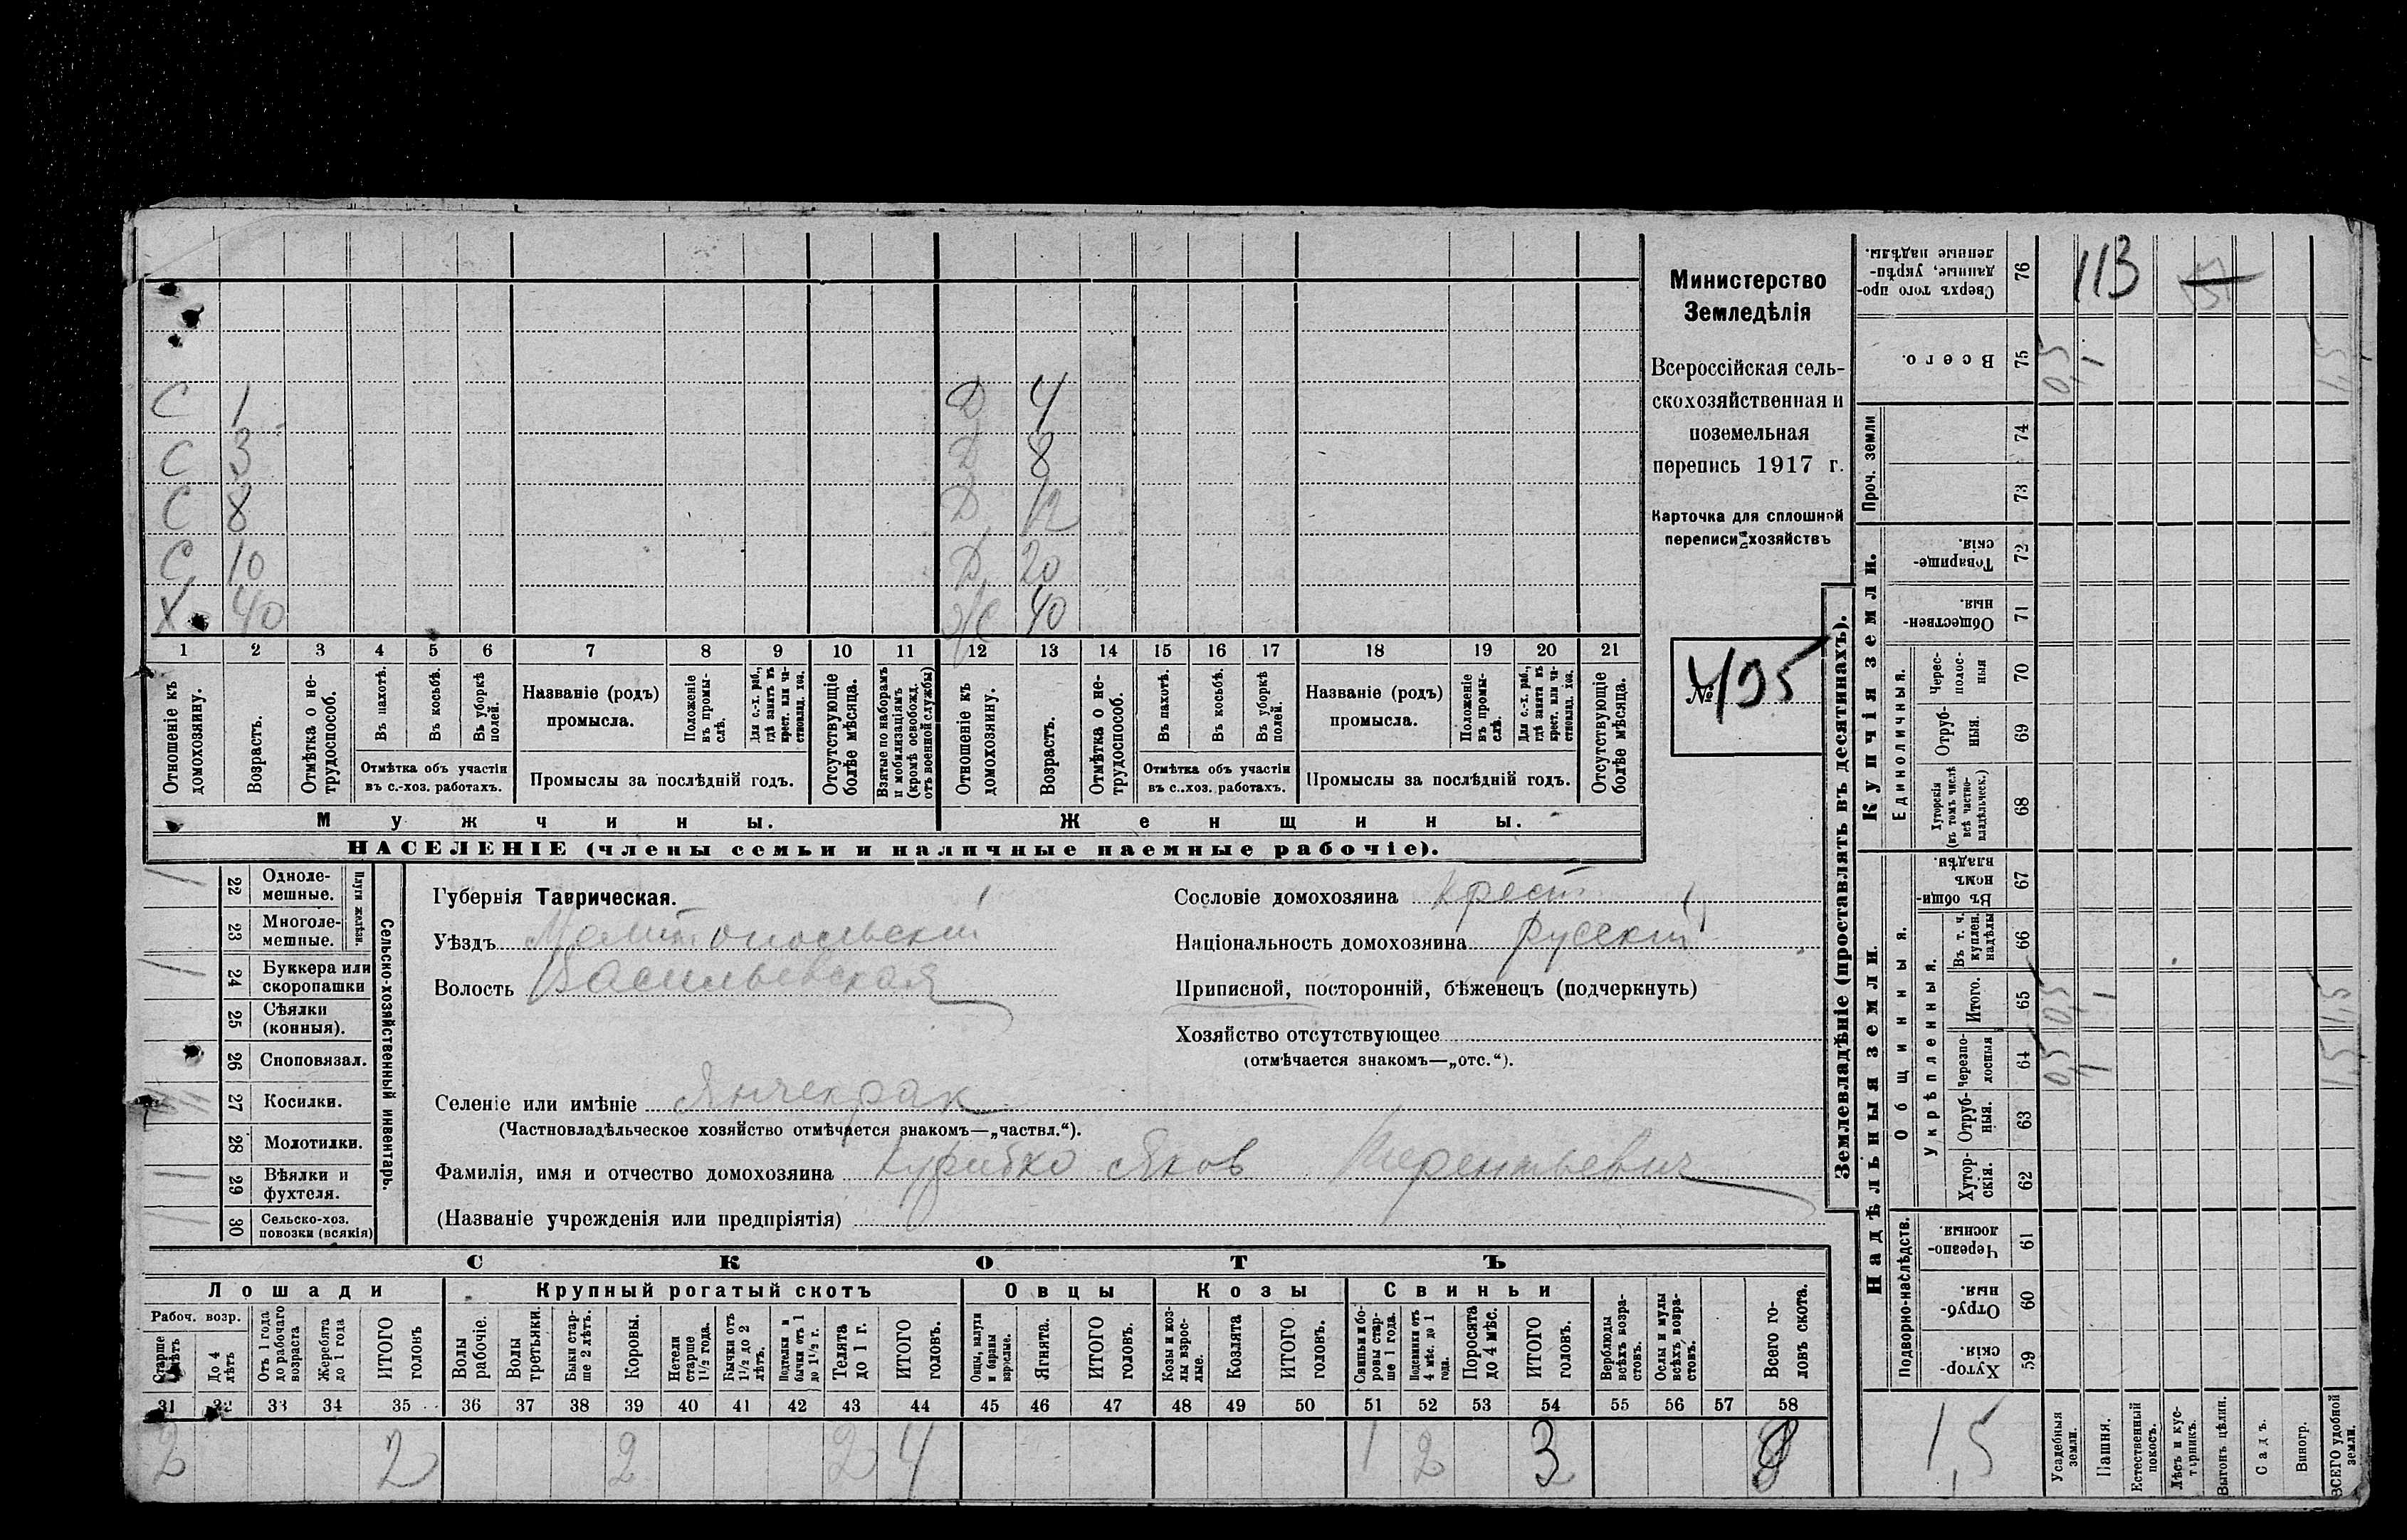 С 1 Д 4
С 3 Д 8
С 8 Д 12
С 10 Д 20
Х 40 Ж 40
1 2 3 4 5 6 7 8 9 10 11 12 13 14 15 16 17 18 19 20 21
Отношеніе къ домохозяину.
Возрастъ.
Отмѣтка о не-трудоспособ.
Въ пахотѣ.
Въ косьбѣ.
Въ уборкѣ полей.
Отмѣтка объ участіи
въ с.-хоз. работахъ.
Названіе (родъ)
промысла.
Положеніе въ промы-слѣ.
Для с.-х. раб., гдѣ занятъ въ крест. или ча-стновлад. хоз.
Промыслы за послѣдній годъ.
Отсутствующіе болѣе мѣсяца.
Взятые по наборамъ и мобилизаціямъ (кромѣ освобожд. отъ военной службы)
Отношеніе къ домохозяину.
Возрастъ.
Отмѣтка о не-трудоспособ.
Въ пахотѣ.
Въ косьбѣ.
Въ уборкѣ полей.
Отмѣтка объ участіи
въ с.-хоз. работахъ.
Названіе (родъ)
промысла.
Положеніе въ промы-слѣ.
Для с.-х. раб., гдѣ занята въ крест. или ча-стновлад. хоз.
Промыслы за послѣдній годъ.
Отсутствующіе болѣе мѣсяца.
Мужчины.
Женщины.
НАСЕЛЕНІЕ (члены семьи и наличные наемные рабочіе).
Министерство
Земледѣлія
Всероссійская сель-
скохозяйственная и
поземельная
перепись 1917 г.
Карточка для сплошной
переписи хозяйствъ
№ 495
Сельско-хозяйственный инвентарь.
Плуги желѣзн.
22 Одноле-мешные.
23 Многоле-мешные.
24 Буккера или скоропашки
25 Сѣялки (конныя).
26 Сноповязал.
27 Косилки.
28 Молотилки.
29 Вѣялки и фухтеля.
30 Сельско-хоз. повозки (всякія)
Губернія Таврическая.
Уѣздъ Мелитопольскій
Волость Васильевская
Сословіе домохозяина крест.
Національность домохозяина русскій
Приписной, посторонній, бѣженецъ (подчеркнуть)
Хозяйство отсутствующее
(отмѣчается знакомъ—„отс.“).
Селеніе или имѣніе Янчекрак
(Частновладѣльческое хозяйство отмѣчается знакомъ—„частвл.“).
Фамилія, имя и отчество домохозяина Яков Терентьевич
(Названіе учрежденія или предпріятія)
СКОТЪ
Лошади
Крупный рогатый скотъ
Овцы
Козы
Свиньи
Рабоч. возр.
Старше 4 лѣтъ
До 4 лѣтъ
Отъ 1 года до рабочаго возраста
Жеребята до 1 года
ИТОГО головъ
Волы рабочіе.
Волы третьяки.
Быки стар-ше 2 лѣтъ.
Коровы.
Нетели старше 1½ года.
Бычки отъ 1½ до 2 лѣтъ.
Подтелки и бычки отъ 1 до 1½ г.
Телята до 1 г.
ИТОГО головъ.
Овцы, валухи и бараны взрослые.
Ягнята.
ИТОГО головъ.
Козы и коз-лы взрос-лые.
Козлята
ИТОГО головъ.
Свиньи и бо-ровы стар-ше 1 года.
Подсвинки отъ 4 мѣс. до 1 года.
Поросята до 4 мѣс.
ИТОГО головъ.
Верблюды всѣхъ возра-стовъ.
Ослы и мулы всѣхъ возра-стовъ.
Всего го-ловъ скота.
31 32 33 34 35 36 37 38 39 40 41 42 43 44 45 46 47 48 49 50 51 52 53 54 55 56 57 58
2 2 2 2 4 1 2 3
Землевладѣніе (проставлять въ десятинахъ).
Купчія земли.
Надѣльныя земли.
Сверхъ того про-данные, укрѣп-ленные надѣлы. 76 113
Всего. 75 0,5 1 1,5
Проч. земли
74
73
Товарище-скія. 72
Обществен-ныя. 71
Единоличныя.
Черес-полос-ныя 70
Отруб-ныя. 69
Хуторскія (въ томъ числѣ всѣ частно-владѣльческ.) 68
Общинныя.
Въ общин-номъ владѣн. 67
Укрѣпленныя.
Въ т. ч. куплен. надѣлы 66
Итого. 65 0,5 1 1,5
Черезпо-лосныя 64 0,5 1 1,5
Отруб-ныя. 63
Хутор-скія. 62
Подворно-наслѣдств.
Черезпо-лосныя 61
Отруб-ныя. 60
Хутор-скія. 59
1,5
Усадебныя земли.
Пашня.
Естественный покосъ.
Лѣсъ и кус-тарникъ.
Выгонъ цѣлин.
Садъ.
Виногр.
ВСЕГО удобной земли.